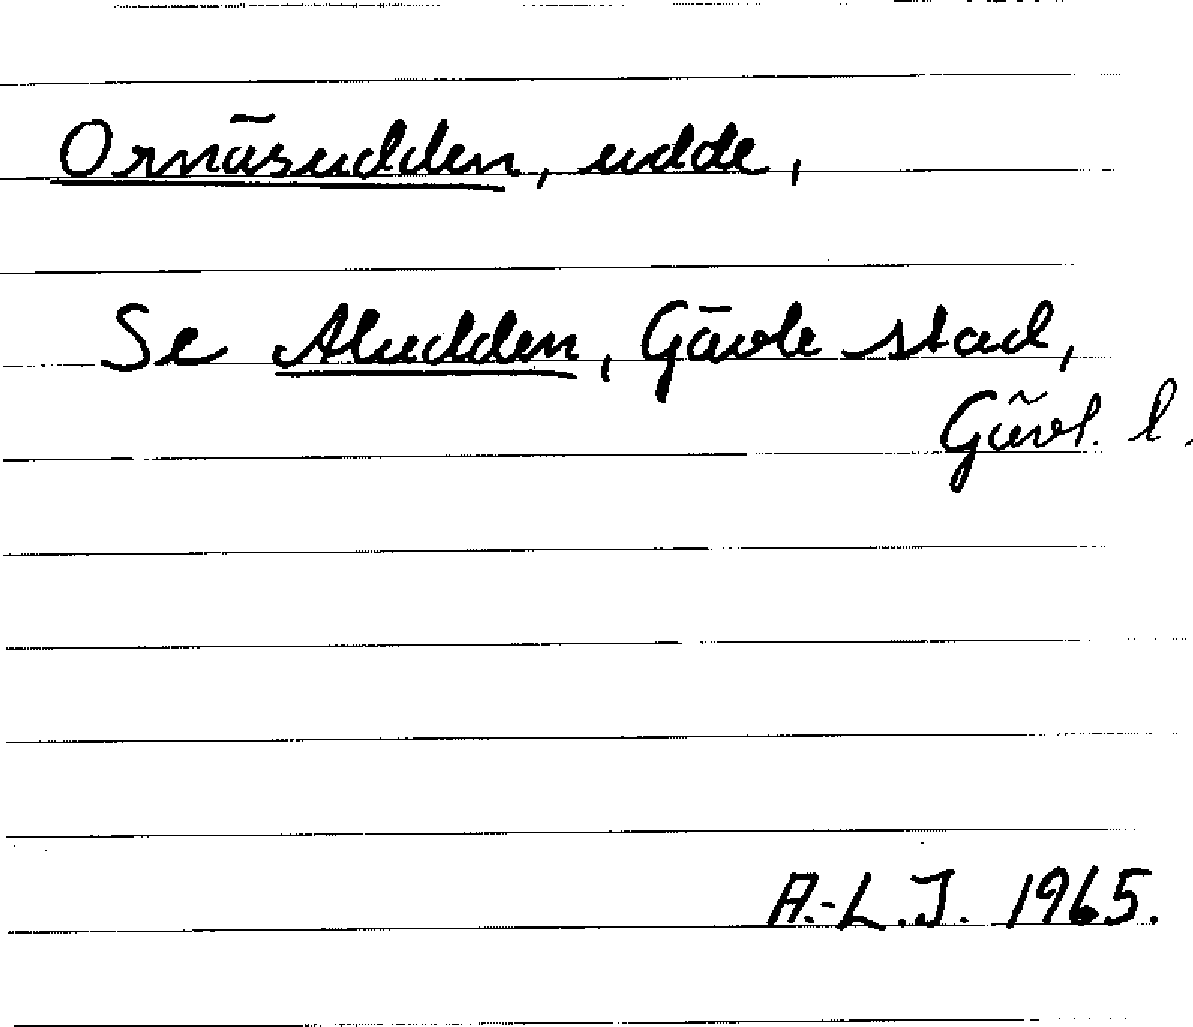 Ornäsudden, udde,
Se Aludden, Gävle stad,
Gävl. l.
A.-L.J. 1965.